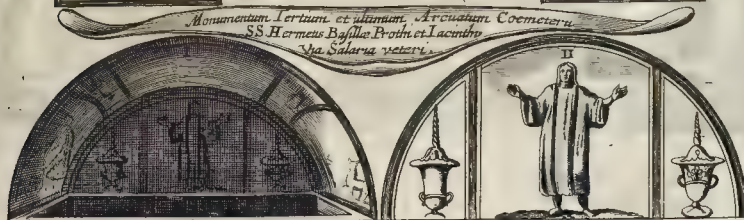 Monumentum Tertium et ultimum Arcuatum Coemeterii
SS. Hermetis Basillæ Prothi et Iacinthi
Via Salaria veteri.
II